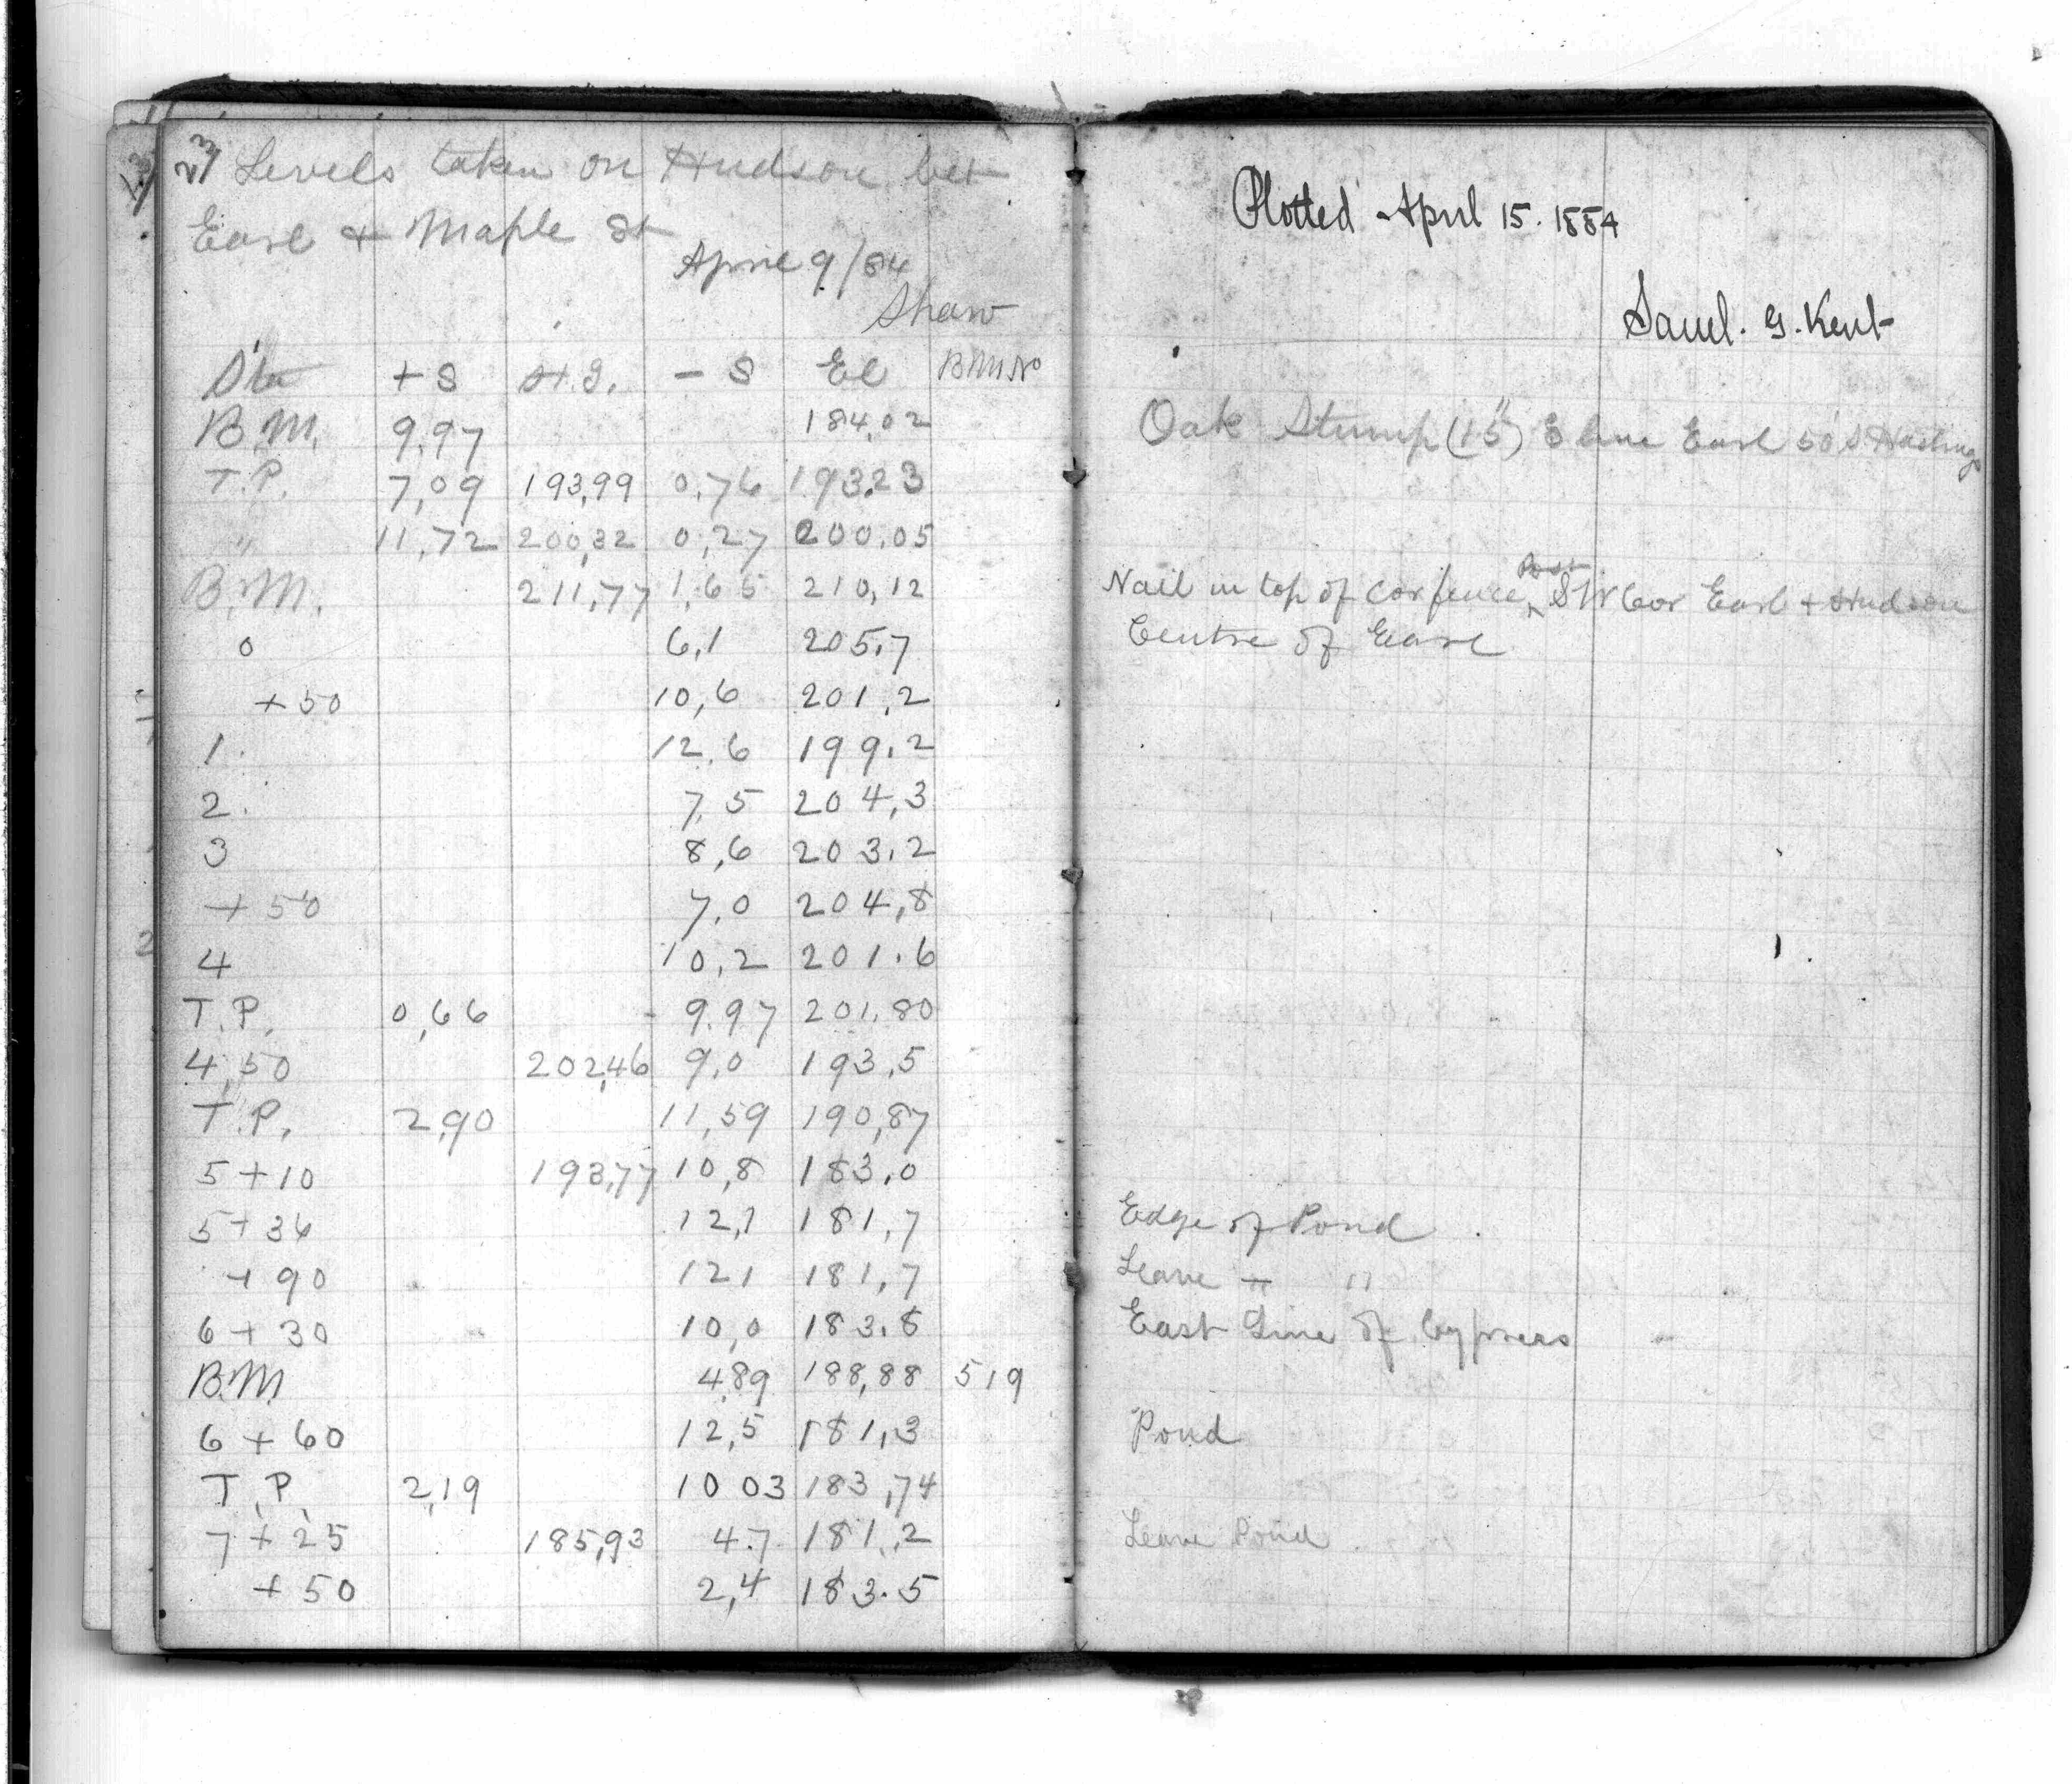 27 Levels taken on Hudson bet
Earl + Maple St
April 9/84
Shaw
Sta +S H.I. -S El B.M.No
B.M. 9,97 184,02
T.P. 7,09 193,99 0,76 193.23
" 11,72 200,32 0,27 200,05
B.M. 211,77 1,65 210,12
0 6,1 205,7
+50 10,6 201,2
1. 12,6 199,2
2. 7,5 204,3
3 8,6 203,2
+50 7,0 204,8
4 10,2 201.6
T.P. 0,66 9.97 201.80
4,50 202,46 9,0 193,5
T.P. 2,90 11,59 190,87
5+10 193,77 10,8 183.0
5+36 12,1 181,7
+90 121 181,7
6+30 10,0 183.8
B.M. 4,89 188,88 519
6+60 12,5 181,3
T.P. 2,19 10 03 183,74
7+25 185,93 4.7 181,2
+50 2,4 183.5
Plotted April 15. 1884
Saml. G. Kent
Oak Stump (15") E line Earl 50' S Hastings
Nail in top of cor fence Post SW Cor Earl + Hudson
Centre of Earl
Edge of Pond
Leave " "
East Line of Cypress
Pond
Leave Pond